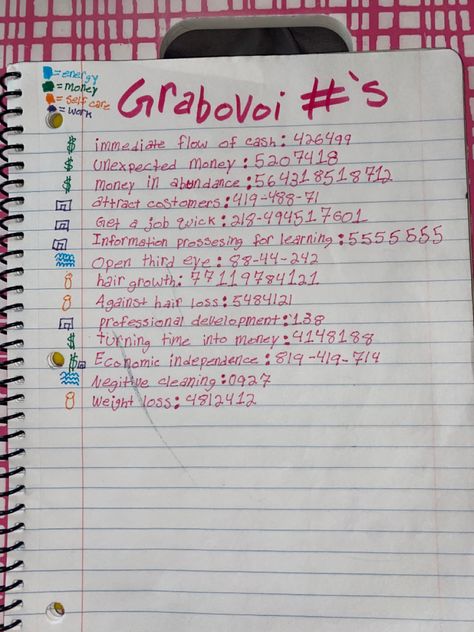 = energy
= money
= self care
= work
Grabovoi #`s
immediate flow of cash: 426499
Unexpected money: 5207418
money in abundance: 564318518712
attract costomers: 419-488-71
Get a job quick: 218-494517601
Information prossesing for learning: 5555555
Open third eye: 88-44-242
hair growth: 77119784121
Against hair loss: 5484121
professional development: 138
turning time into money: 4148188
Economic independence: 819-419-714
Negitive cleaning: 0927
weight loss: 4812412